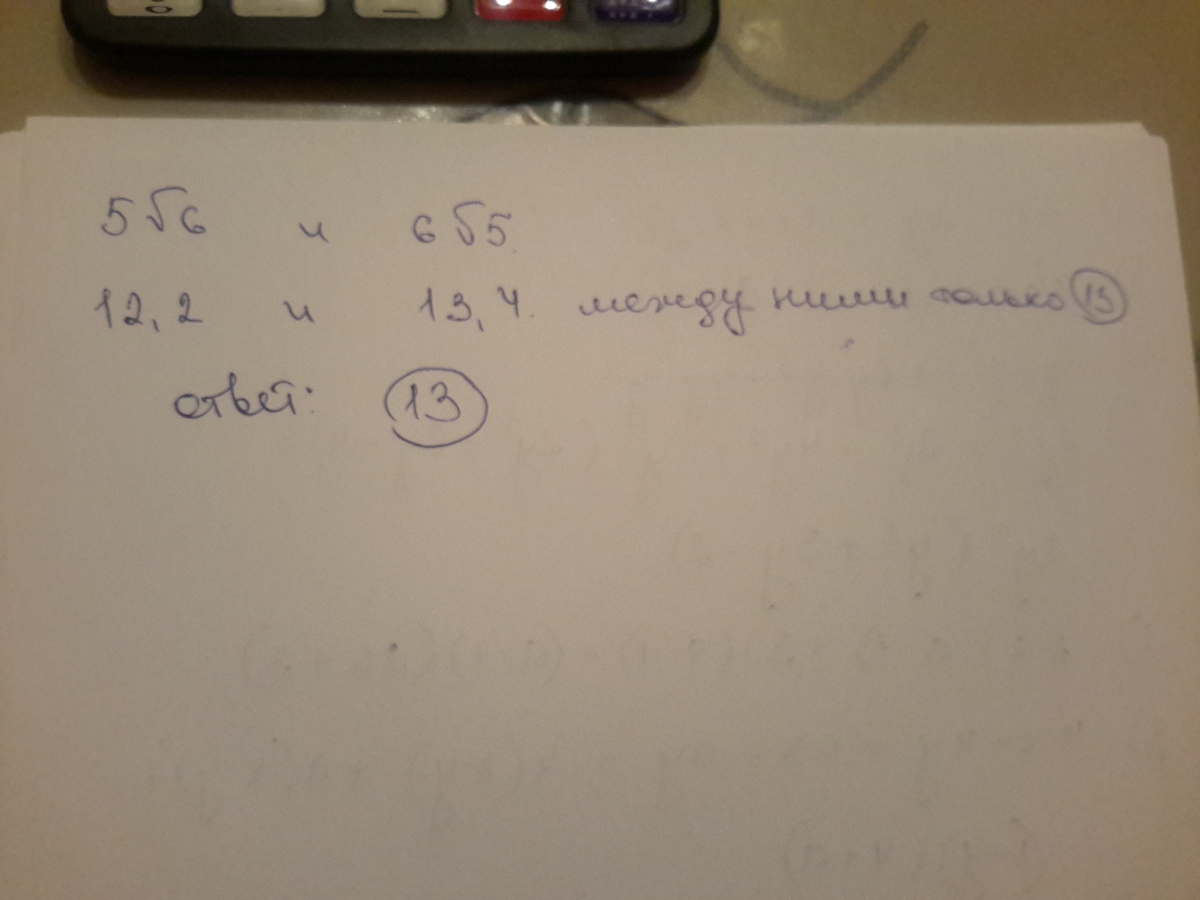 5√6 и 6√5
12,2 и 13,4 между ними только 13
ответ: 13